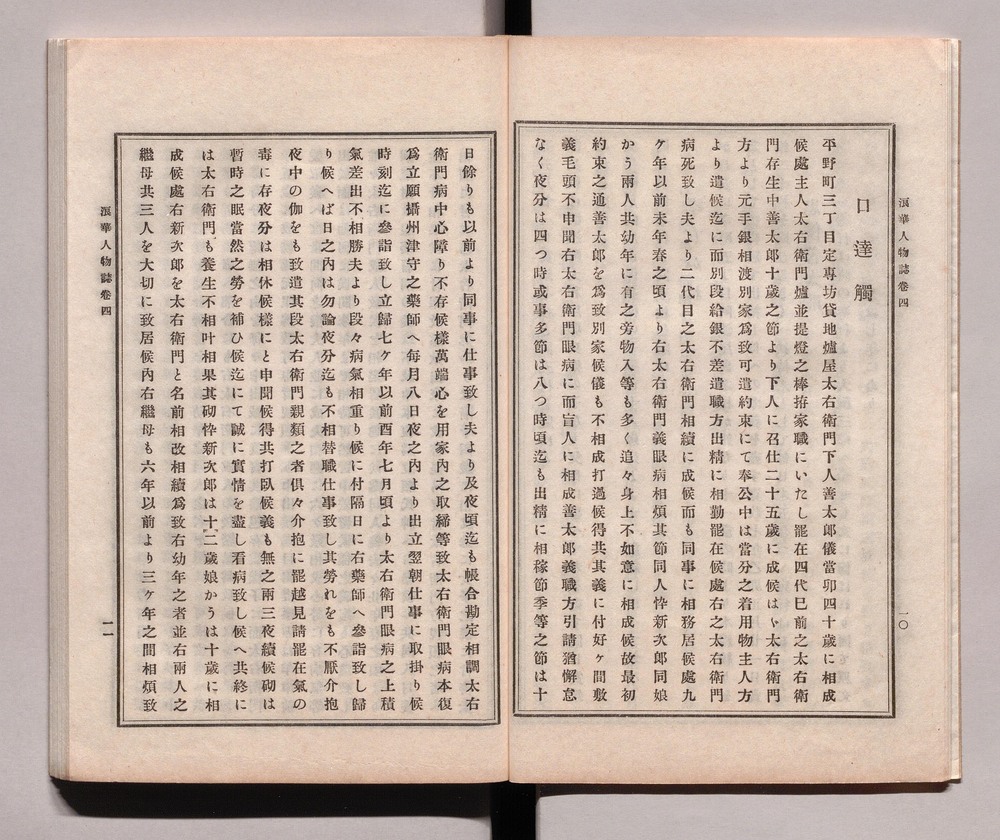 浪華人物誌卷四
一〇
口達觸
平野町三丁目定專坊貸地爐屋太右衛門下人善太郎儀當卯四十歳に相成
候處主人太右衛門爐並提燈之棒拵家職にいたし罷在四代巳前之太右衛
門存生中善太郎十歳之節より下人に召仕二十五歳に成候はゝ太右衛門
方より元手銀相渡別家爲致可遣約束にて奉公中は當分之着用物主人方
より遣候迄に而別段給銀不差遣職方出精に相勤罷在候處右之太右衛門
病死致し夫より二代目之太右衛門相續に成候而も同事に相務居候處九
ケ年以前未年春之頃より右太右衛門義眼病相煩其節同人忰新次郎同娘
かう兩人共幼年に有之旁物入等も多く追々身上不如意に相成候故最初
約束之通善太郎を爲致別家候儀も不相成打過候得共其義に付好ヶ間敷
義毛頭不申聞右太右衛門眼病に而盲人に相成善太郎義職方引請猶懈怠
なく夜分は四つ時或事多節は八つ時頃迄も出精に相稼節季等之節は十
日餘りも以前より同事に仕事致し夫より及夜頃迄も帳合勘定相調太右
衛門病中心障り不存候樣萬端心を用家內之取締等致太右衛門眼病本復
爲立願攝州津守之藥師へ每月八日夜之內より出立翌朝仕事に取掛り候
時刻迄に參詣致し立歸七ケ年以前酉年七月頃より太右衛門眼病之上積
氣差出不相勝夫より段々病氣相重り候に付隔日に右藥師へ參詣致し歸
り候へば日之內は勿論夜分迄も不相替職仕事致し其勞れをも不厭介抱
夜中の伽をも致遣其段太右衛門親類之者俱々介抱に罷越見請罷在氣の
毒に存夜分は相休候樣にと申聞候得共打臥候義も無之兩三夜續候砌は
暫時之眠當然之勞を補ひ候迄にて誠に實情を盡し看病致し候へ共終に
は太右衛門も養生不相叶相果其砌忰新次郎は十二歳娘かうは十歳に相
成候處右新次郎を太右衛門と名前相改相續爲致右幼年之者並右兩人之
繼母共三人を大切に致居候內右繼母も六年以前より三ヶ年之間相煩致
浪華人物誌卷四
一一